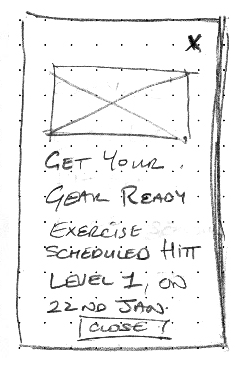 X
GET YOUR
GEAR READY
EXERCISE
SCHEDULED HIIT
LEVEL 1, ON
22ND JAN.
CLOSE